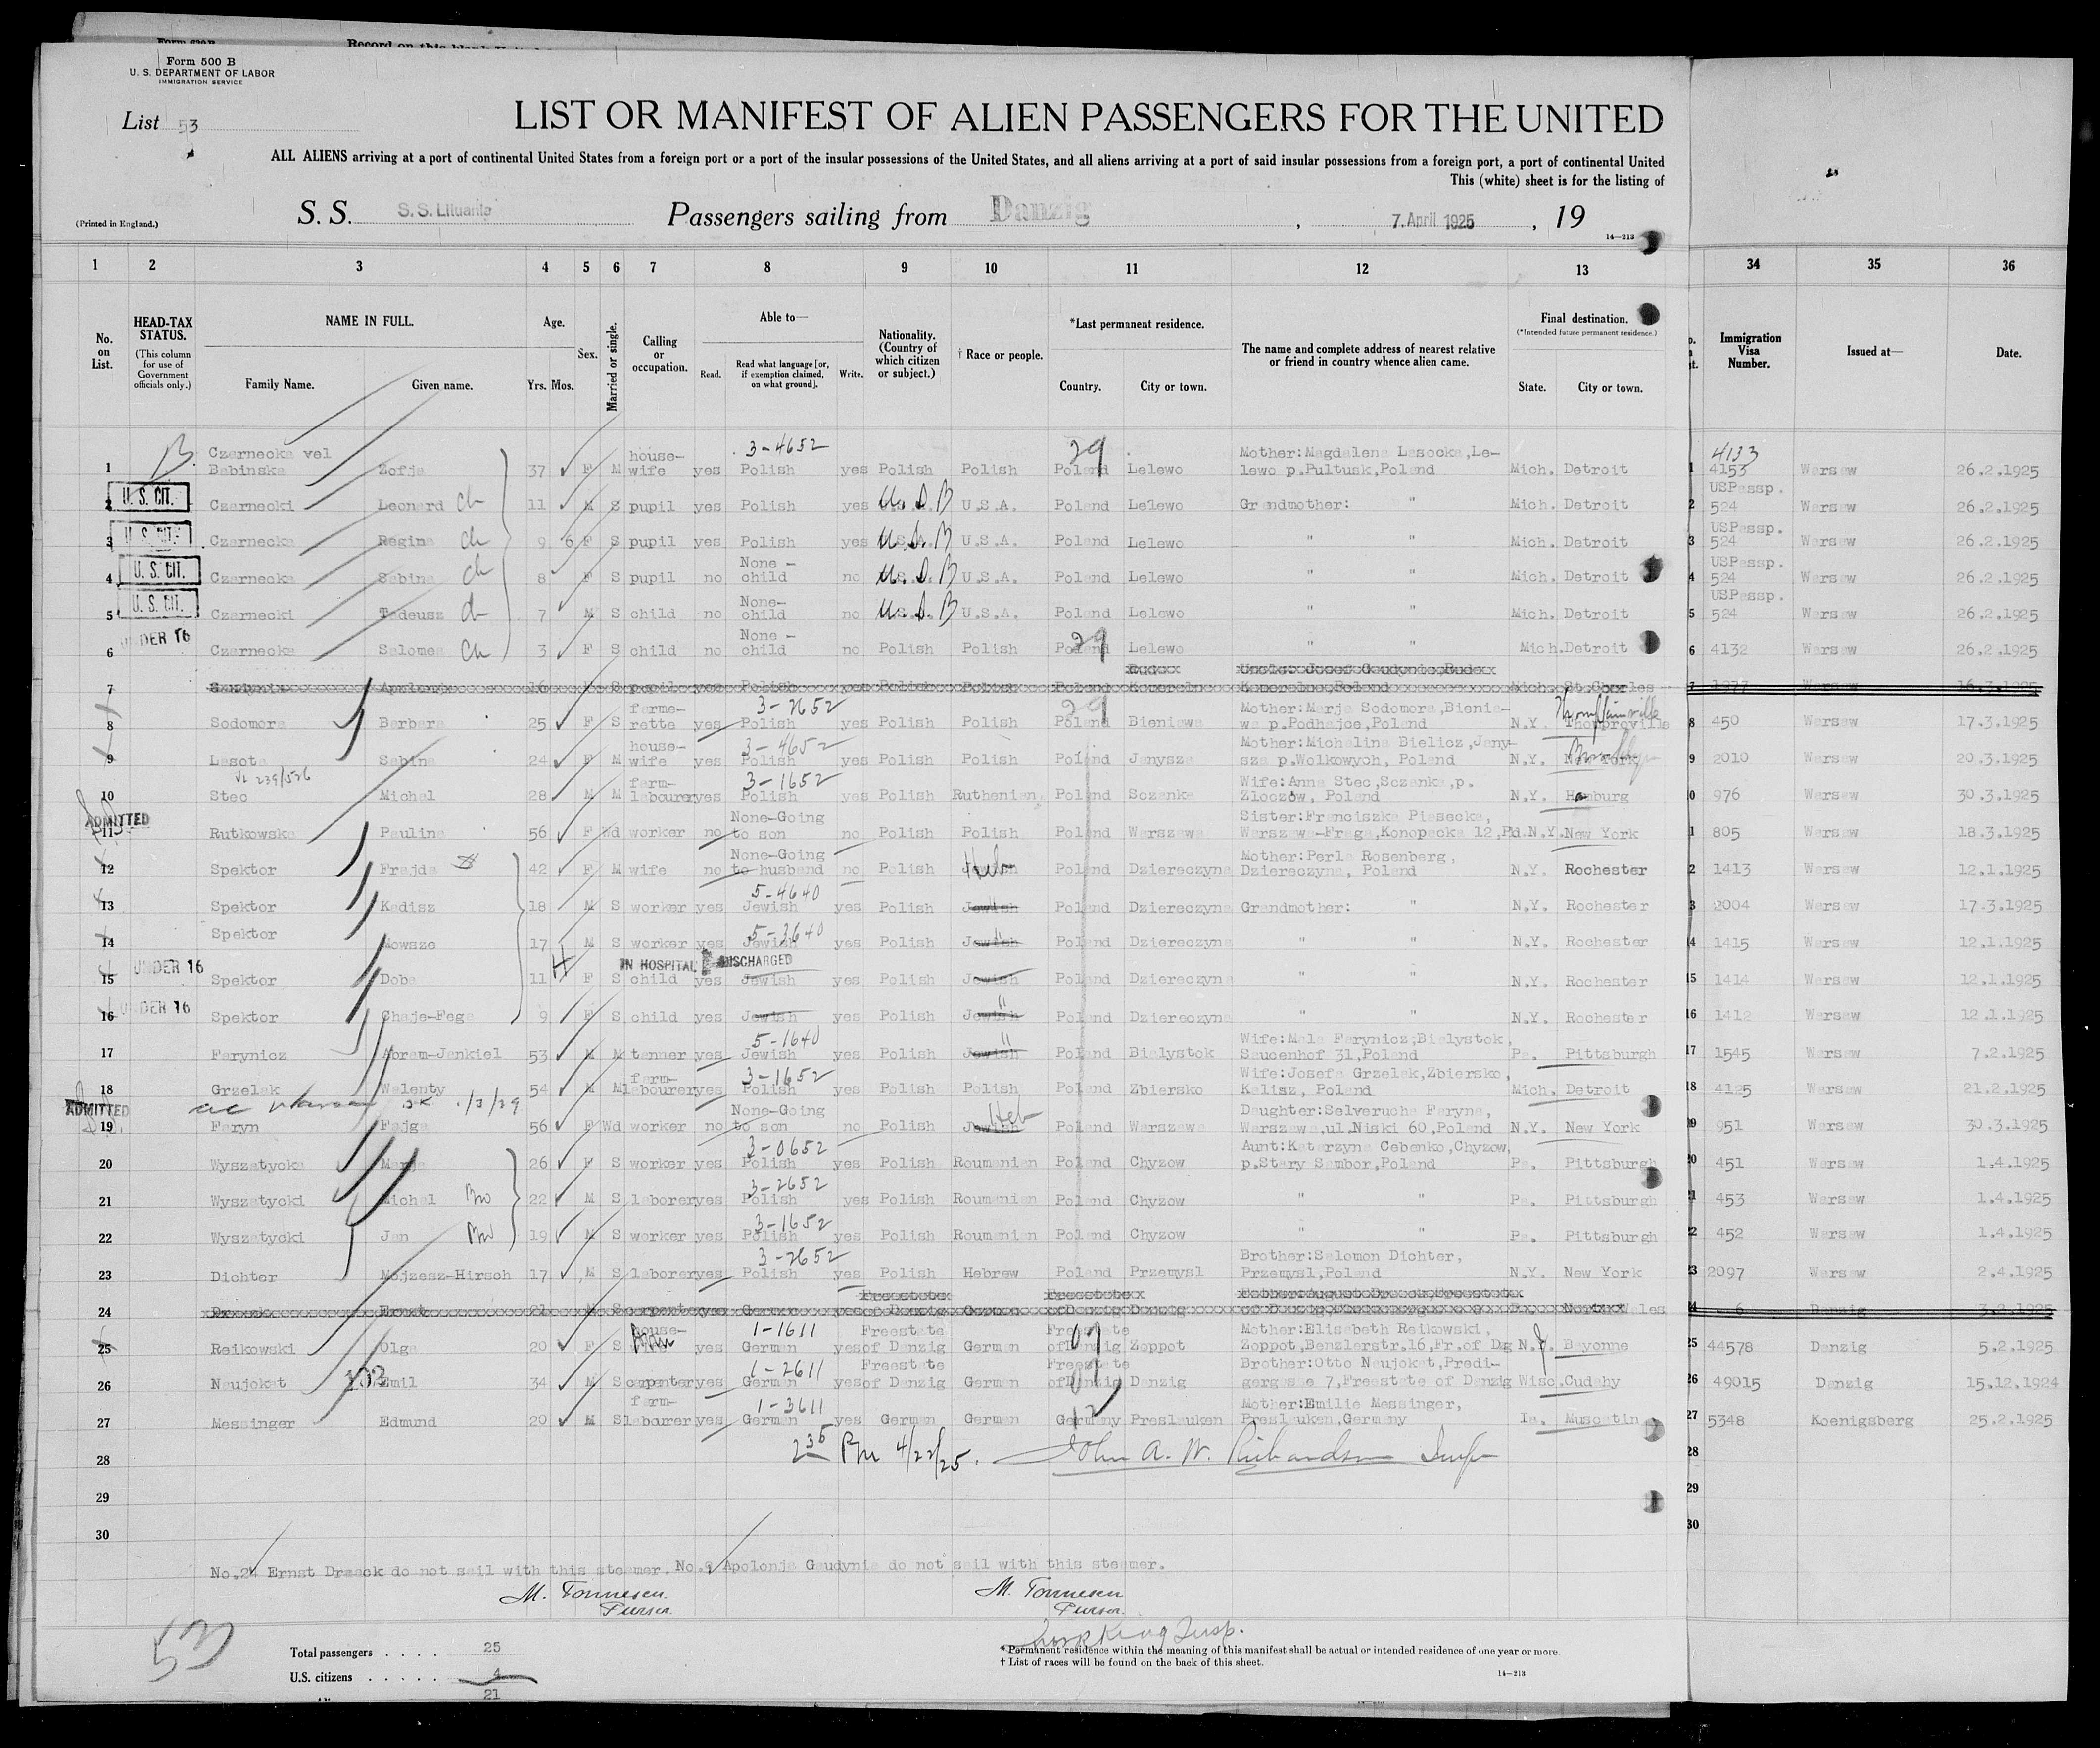 Form 500 B
U. S. DEPARTMENT OF LABOR
IMMIGRATION SERVICE
List 53
LIST OR MANIFEST OF ALIEN PASSENGERS FOR THE UNITED
ALL ALIENS arriving at a port of continental United States from a foreign port or a port of the insular possessions of the United States, and all aliens arriving at a port of said insular possessions from a foreign port, a port of continental United
This (white) sheet is for the listing of
(Printed in England.)
S. S. S. S. Lituania Passengers sailing from Danzig , 7. April 1925 , 19
14—213
1 2 3 4 5 6 7 8 9 10 11 12 13 34 35 36
No. on List.
HEAD-TAX STATUS. (This column for use of Government officials only.)
NAME IN FULL. Family Name. Given name.
Age. Yrs. Mos.
Sex.
Married or single.
Calling or occupation.
Able to— Read. Read what language [or, if exemption claimed, on what ground]. Write.
Nationality. (Country of which citizen or subject.)
† Race or people.
*Last permanent residence. Country. City or town.
The name and complete address of nearest relative or friend in country whence alien came.
Final destination. (*Intended future permanent residence.) State. City or town.
Immigration Visa Number.
Issued at—
Date.
Czarnecka vel house- 3-4652 29 Mother:Magdalena Lasocka,Le- 4133
1 Babinska Zofja 37 F M wife yes Polish yes Polish Polish Poland Lelewo lewo p.Pultusk,Poland Mich. Detroit 1 4153 Warsaw 26.2.1925
U. S. CIT. USPassp.
2 Czarnecki Leonard ch 11 M S pupil yes Polish yes U.S.A. U.S.A. Poland Lelewo Grandmother: " Mich. Detroit 2 524 Warsaw 26.2.1925
U. S. CIT. USPassp.
3 Czarnecka Regina ch 9 6 F S pupil yes Polish yes U.S.A. U.S.A. Poland Lelewo " " Mich. Detroit 3 524 Warsaw 26.2.1925
U. S. CIT. None - USPassp.
4 Czarnecka Sabina ch 8 F S pupil no child no U.S.A. U.S.A. Poland Lelewo " " Mich. Detroit 4 524 Warsaw 26.2.1925
U. S. CIT. None- USPassp.
5 Czarnecki Tadeusz ch 7 M S child no child no U.S.A. U.S.A. Poland Lelewo " " Mich. Detroit 5 524 Warsaw 26.2.1925
UNDER 16 None - 29
6 Czarnecka Salomea ch 3 F S child no child no Polish Polish Poland Lelewo " " Mich. Detroit 6 4132 Warsaw 26.2.1925
7 Gaudynia Apolonja 16 S pupil yes Polish yes Polish Polish Poland Mich. St.Charles 7 1977 Warsaw 16.3.1925
farme- 3-2652 29 Mother:Marja Sodomora,Bienia-
8 Sodomora Barbara 25 F S rette yes Polish yes Polish Polish Poland Bieniawa wa p.Podhajce,Poland N.Y. 8 450 Warsaw 17.3.1925
house- 3-4652 Mother:Michalina Bielicz,Jany- Brooklyn
9 Lasota Sabina 24 F M wife yes Polish yes Polish Polish Poland Janysza sza p.Wolkowych, Poland N.Y. New York 9 2010 Warsaw 20.3.1925
VL 239/526 farm- 3-1652 Wife:Anna Stec,Sczanka,p.
10 Stec Michal 28 M M labourer yes Polish yes Polish Ruthenian Poland Sczanka Zloczów, Poland N.Y. Hamburg 0 976 Warsaw 30.3.1925
ADMITTED None-Going Sister:Franciszka Piasecka,
11 Rutkowska Paulina 56 F Wd worker no to son no Polish Polish Poland Warszawa Warszawa-Praga,Konopacka 12,Pd. N.Y. New York 1 805 Warsaw 18.3.1925
None-Going Mother:Perla Rosenberg,
12 Spektor Frajda 42 F M wife no to husband no Polish Heb Poland Dziereczyna Dziereczyna, Poland N.Y. Rochester 2 1413 Warsaw 12.1.1925
5-4640
13 Spektor Kadisz 18 M S worker yes Jewish yes Polish Jewish Poland Dziereczyna Grandmother: " N.Y. Rochester 3 2004 Warsaw 17.3.1925
Spektor 5-3640
14 Mowsze 17 M S worker yes Jewish yes Polish Jewish Poland Dziereczyna " " N.Y. Rochester 4 1415 Warsaw 12.1.1925
UNDER 16 IN HOSPITAL DISCHARGED
15 Spektor Doba 11 F S child yes Jewish yes Polish Jewish Poland Dziereczyna " " N.Y. Rochester 15 1414 Warsaw 12.1.1925
UNDER 16
16 Spektor Chaje-Fega 9 F S child yes Jewish yes Polish Jewish Poland Dziereczyna " " N.Y. Rochester 16 1412 Warsaw 12.1.1925
5-1640 Wife:Mala Farynicz,Bialystok,
17 Farynicz Abram-Jankiel 53 M M tanner yes Jewish yes Polish Jewish Poland Bialystok Saucenhof 31,Poland Pa. Pittsburgh 17 1545 Warsaw 7.2.1925
farm- 3-1652 Wife:Josefa Grzelak,Zbiersko,
18 Grzelak Walenty 54 M M labourer yes Polish yes Polish Polish Poland Zbiersko Kalisz, Poland Mich. Detroit 18 4125 Warsaw 21.2.1925
ADMITTED None-Going Heb Daughter:Selverucha Faryna,
19 Faryn Fajga 56 F Wd worker no to son no Polish Jewish Poland Warszawa Warszawa,ul.Niski 60,Poland N.Y. New York 19 951 Warsaw 30.3.1925
3-0652 Aunt:Katarzyna Cebenko,Chyzow,
20 Wyszatycka Marja 26 F S worker yes Polish yes Polish Roumanian Poland Chyzow p.Stary Sambor,Poland Pa. Pittsburgh 20 451 Warsaw 1.4.1925
3-2652
21 Wyszatycki Michal Bro 22 M S laborer yes Polish yes Polish Roumanian Poland Chyzow " " Pa. Pittsburgh 21 453 Warsaw 1.4.1925
3-1652
22 Wyszatycki Jan Bro 19 M S worker yes Polish yes Polish Roumanian Poland Chyzow " " Pa. Pittsburgh 22 452 Warsaw 1.4.1925
3-2652 Brother:Salomon Dichter,
23 Dichter Mojzesz-Hirsch 17 M S laborer yes Polish yes Polish Hebrew Poland Przemysl Przemysl,Poland N.Y. New York 23 2097 Warsaw 2.4.1925
Freestate Freestate
24 Ernst 21 M S carpenter yes German yes of Danzig German of Danzig Danzig Danzig 3.2.1925
house- 1-1611 Freestate Freestate Mother:Elisabeth Reikowski,
25 Reikowski Olga 20 F S yes German yes of Danzig German of Danzig Zoppot Zoppot,Benzlerstr.16,Fr.of Dzg N.J. Bayonne 25 44578 Danzig 5.2.1925
1-2611 Freestate Freestate Brother:Otto Naujokat,Predi-
26 Naujokat Emil 34 M S carpenter yes German yes of Danzig German of Danzig Danzig gergasse 7,Freestate of Danzig Wisc. Cudahy 26 49015 Danzig 15.12.1924
farm- 1-3611 12 Mother:Emilie Messinger,
27 Messinger Edmund 20 M S labourer yes German yes German German Germany Preslauken Preslauken,Germany Ia. Muscatin 27 5348 Koenigsberg 25.2.1925
28 235 Pm 4/22/25. John A. W. Richardson Insp 28
29 29
30 30
No.24 Ernst Draack do not sail with this steamer. No.7 Apolonja Gaudynia do not sail with this steamer.
M. Tonnesen. M. Tonnesen
Purser. Purser.
53
Total passengers . . . . 25
U.S. citizens . . . . . 4
21
* Permanent residence within the meaning of this manifest shall be actual or intended residence of one year or more.
† List of races will be found on the back of this sheet.
14—213